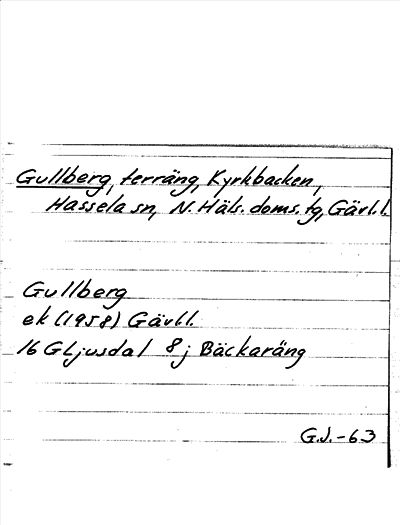 Gullberg, terräng, Kyrkbacken,
Hassela sn, N. Häls. doms. tg, Gävl.l.
Gullberg
ek (1958) Gävll.
16 G Ljusdal 8 j Bäckaräng
G.J.-63